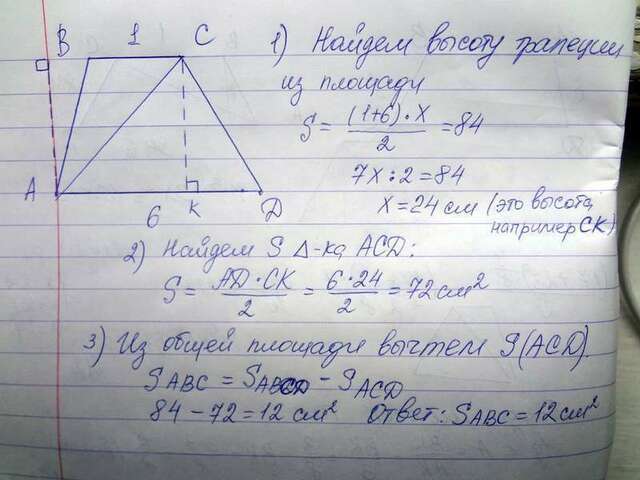 B 1 C
A 6 K D
1) Найдем высоту трапеции
из площади
S = (1+6)·X / 2 = 84
7X : 2 = 84
X = 24 см (это высота,
например CK)
2) Найдем S Δ-ка ACD:
S = AD·CK / 2 = 6·24 / 2 = 72 см²
3) Из общей площади вычтем S(ACD).
S ABC = S ABCD - S ACD
84 - 72 = 12 см² Ответ: S ABC = 12 см²